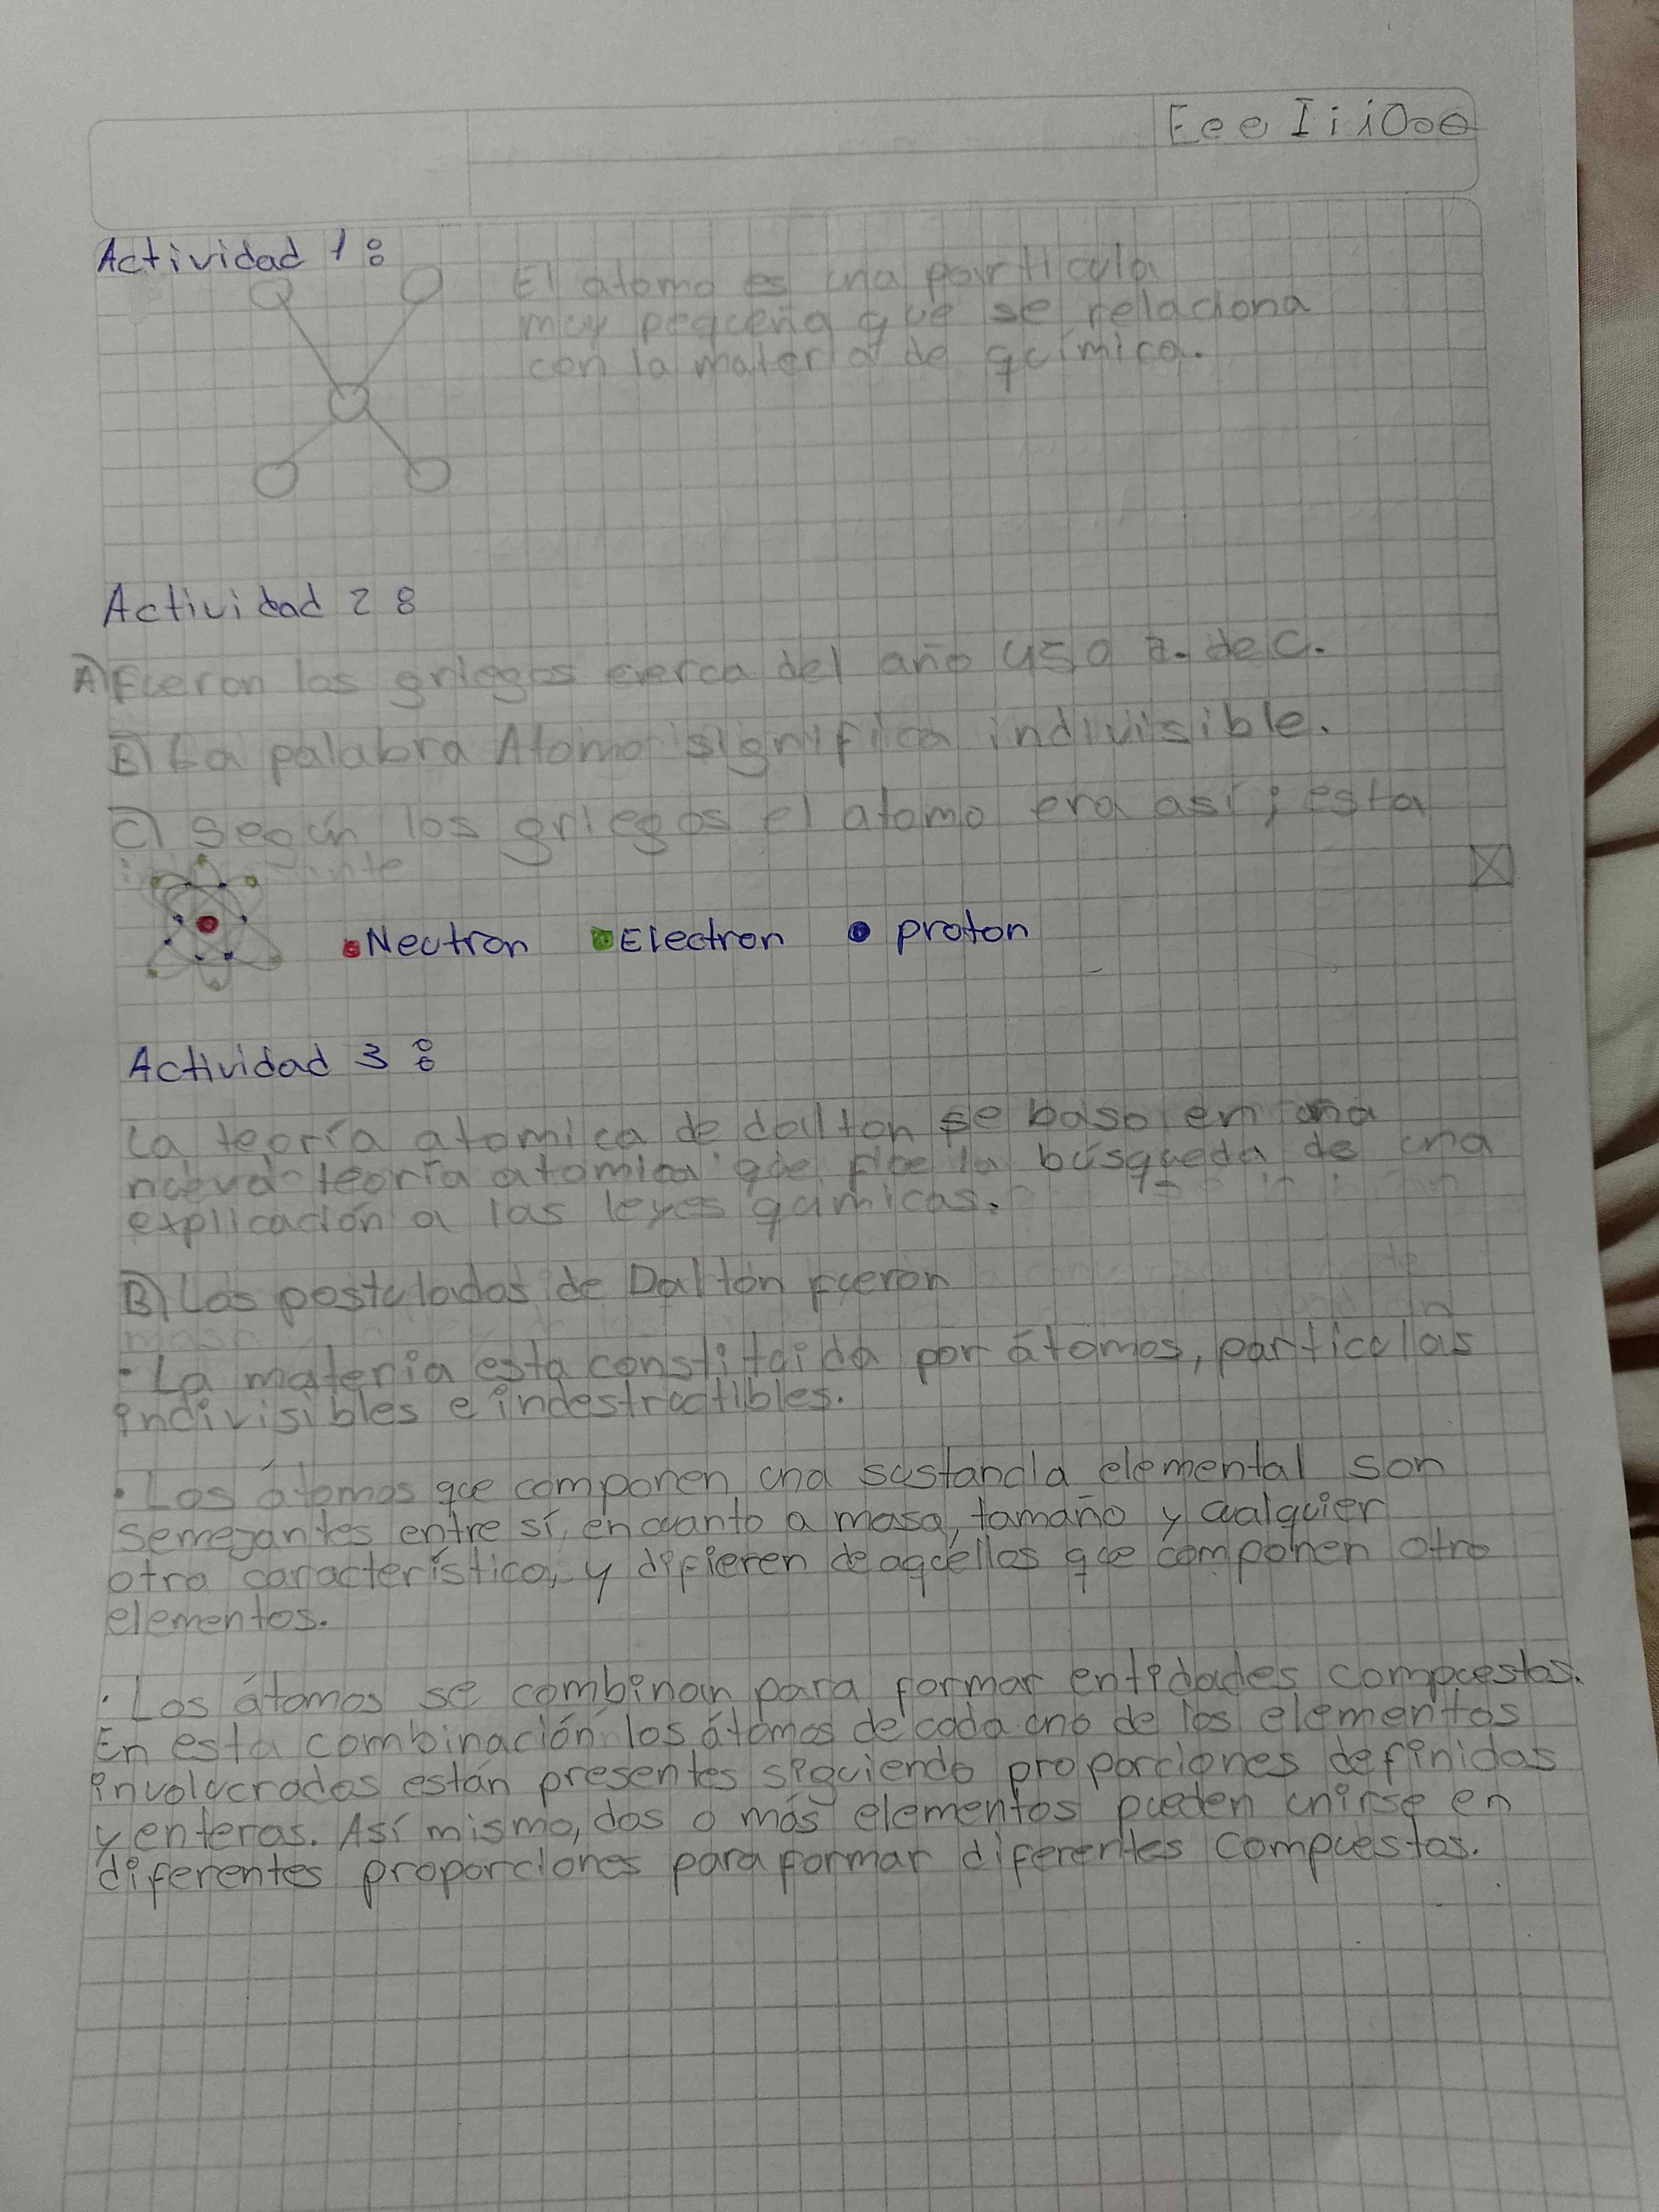 Eee IiiOoo
Actividad 1:
El atomo es una particula
muy pequeña que se relaciona
con la materia de química.
Actividad 2:
A) Fueron los griegos cerca del año 450 a. de C.
B) La palabra Atomo significa indivisible.
C) Según los griegos el atomo era así; esta
Neutron Electron proton
Actividad 3:
La teoría atomica de dalton se baso en una
nueva teoría atomica que fue la búsqueda de una
explicación a las leyes quimicas.
B) Los postulados de Dalton fueron
· La materia esta constituida por átomos, particulas
indivisibles e indestructibles.
· Los átomos que componen una sustancia elemental son
semejantes entre sí, en cuanto a masa, tamaño y cualquier
otra característica, y difieren de aquéllos que componen otro
elementos.
· Los átomos se combinan para formar entidades compuestas.
En esta combinación los átomos de cada uno de los elementos
involucrados están presentes siguiendo proporciones definidas
y enteras. Así mismo, dos o más elementos pueden unirse en
diferentes proporciones para formar diferentes compuestos.